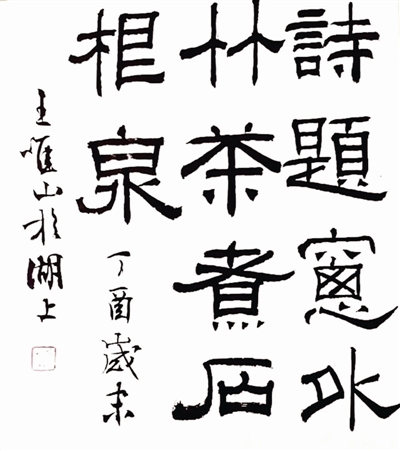 詩題窻外
竹茶煮石
根泉
丁酉歲末
王惟山於湖上